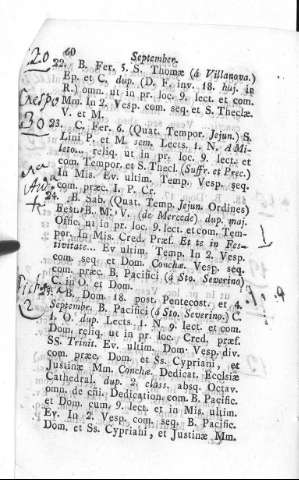 60 September.
22. B. Fer. 5. S. Thomæ (á Villanova.)
Ep. et C. dup. (D. F. inv. 18. huj. in
R.) omn. ut in pr. loc. 9. lect. et com.
Mm. In 2. Vesp. com. seq. et S. Theclæ.
V. et M.
23. C. Fer. 6. (Quat. Tempor. Jejun.) S.
Lini P. et M. sem. Lects. 1. N. á Mi-
leto... reliq. ut in pr. loc. 9. lect. et
com. Tempor. et S. Thecl. (Suffr. et Prec.)
In Mis. Ev. ultim. Temp. Vesp. seq.
com. præc. I. P. Cr.
24. B. Sab. (Quat. Temp. Jejun. Ordines)
Beat. B. M. V. (de Mercede) dup. maj.
Offic. ut in pr. loc. 9. lect. et com. Tem-
por. In Mis. Cred. Præf. Et te in Fes-
tivitate... Ev. ultim. Temp. In 2. Vesp.
com. seq. et Dom. Conchæ. Vesp. seq.
com. præc. B. Pacifici (á Sto. Severino)
C. in O. et Dom.
Dom. 18. post. Pentecost. et 4.
Septembr. B. Pacifici (á Sto. Severino.) C.
1. O. dup. Lects. 1. N. 9. lect. et com.
Dom. reliq. ut in pr. loc. Cred. præf.
SS. Trinit. Ev. ultim. Dom. Vesp. div.
com. præc. Dom. et Ss. Cypriani, et
Justinæ Mm. Conchæ. Dedicat. Ecclsiæ
Cathedral. dup. 2. class. absq. Octav.
omn. de cñi. Dedication. com. B. Pacific.
et Dom. cum 9. lect. et in Mis. ultim.
Ev. In 2. Vesp. com. seq. B. Pacific.
Dom. et Ss. Cypriani, et Justinæ Mm.
20
Crespo
30